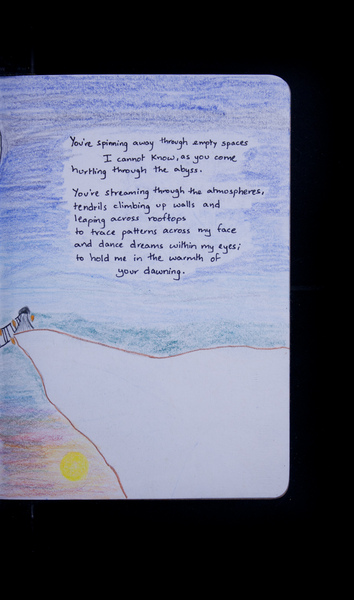 You're spinning away through empty spaces
I cannot know, as you come
hurtling through the abyss.
You're streaming through the atmospheres,
tendrils climbing up walls and
leaping across rooftops
to trace patterns across my face
and dance dreams within my eyes;
to hold me in the warmth of
your dawning.